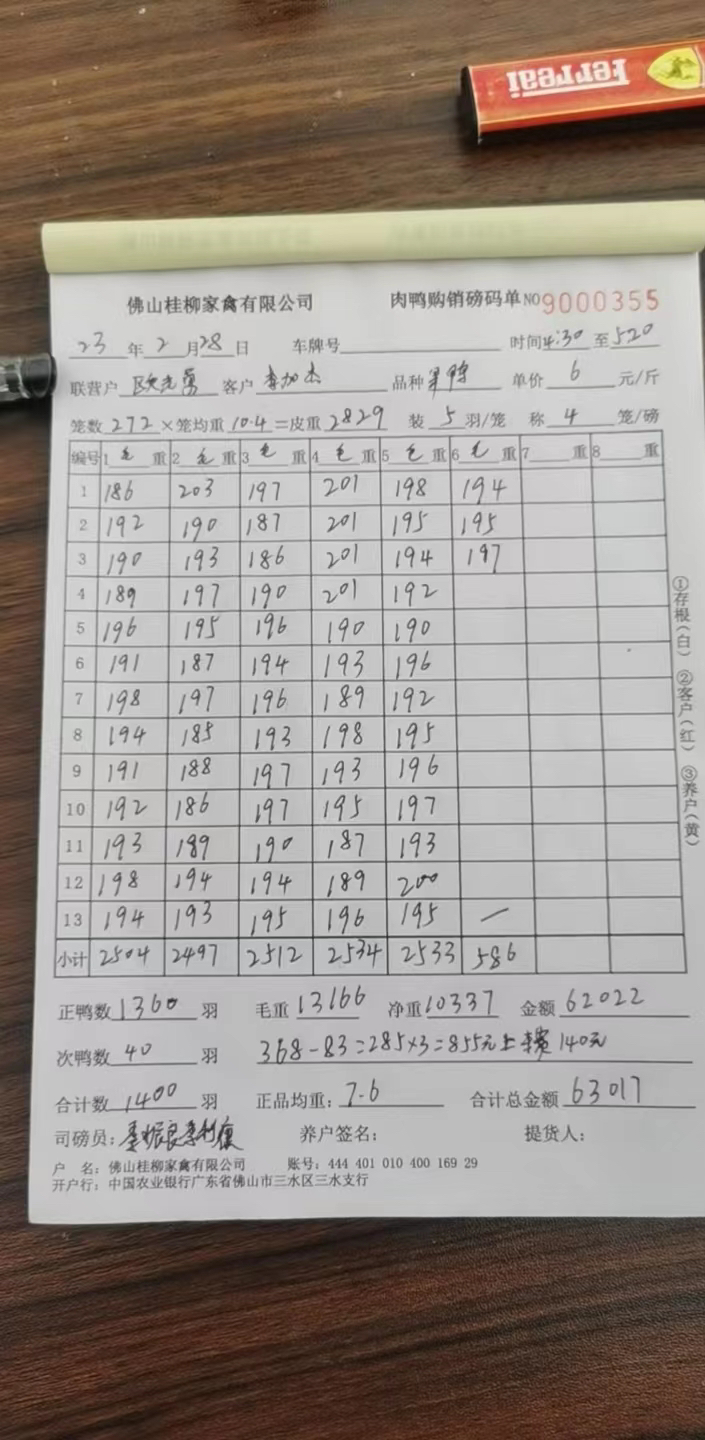 ferreai
佛山桂柳家禽有限公司 肉鸭购销磅码单 NO 9000355
23 年 2 月 28 日 车牌号 时间 4:30 至 520
联营户 欧志勇 客户 李加杰 品种 单价 6 元/斤
笼数 272 ×笼均重 10.4 =皮重 2829 装 5 羽/笼 称 4 笼/磅
编号 1 毛 重 2 毛 重 3 毛 重 4 毛 重 5 毛 重 6 毛 重 7 重 8 重
1 186 203 197 201 198 194
2 192 190 187 201 195 195
3 190 193 186 201 194 197
4 189 197 190 201 192
5 196 195 196 190 190
6 191 187 194 193 196
7 198 197 196 189 192
8 194 185 193 198 195
9 191 188 197 193 196
10 192 186 197 195 197
11 193 189 190 187 193
12 198 194 194 189 200
13 194 193 195 196 195 —
小计 2504 2497 2512 2534 2533 586
正鸭数 1360 羽 毛重 13166 净重 10337 金额 62022
次鸭数 40 羽 368-83=285×3=855元上车费140元
合计数 1400 羽 正品均重: 7.6 合计总金额 63017
司磅员: 养户签名: 提货人:
户 名: 佛山桂柳家禽有限公司 账号: 444 401 010 400 169 29
开户行: 中国农业银行广东省佛山市三水区三水支行
①存根(白) ②客户(红) ③养户(黄)